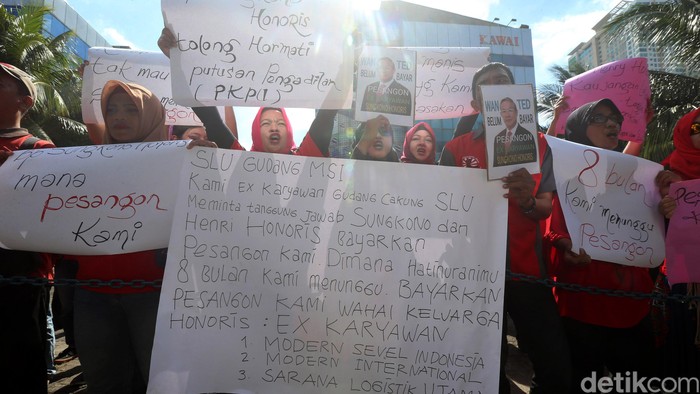 Honoris
tolong Hormati
putusan Pengadilan
(PKPU)
Tak mau
KAWAI
WANTED
BELUM BAYAR
PESANGON
WANTED
BELUM BAYAR
PESANGON
SUNGKONO HONORIS
mana
pesangon
Kami
SLU GUDANG MSI
KAMI EX KARYAWAN GUDANG CAKUNG SLU
MEMINTA TANGGUNG JAWAB SUNGKONO DAN
HENRI HONORIS BAYARKAN
PESANGON KAMI. DIMANA HATINURANIMU
8 BULAN KAMI MENUNGGU. BAYARKAN
PESANGON KAMI WAHAI KELUARGA
HONORIS : EX KARYAWAN
1. MODERN SEVEL INDONESIA
2. MODERN INTERNATIONAL
3. SARANA LOGISTIK UTAMA
8 bulan
Kami menunggu
Pesangon
detikcom